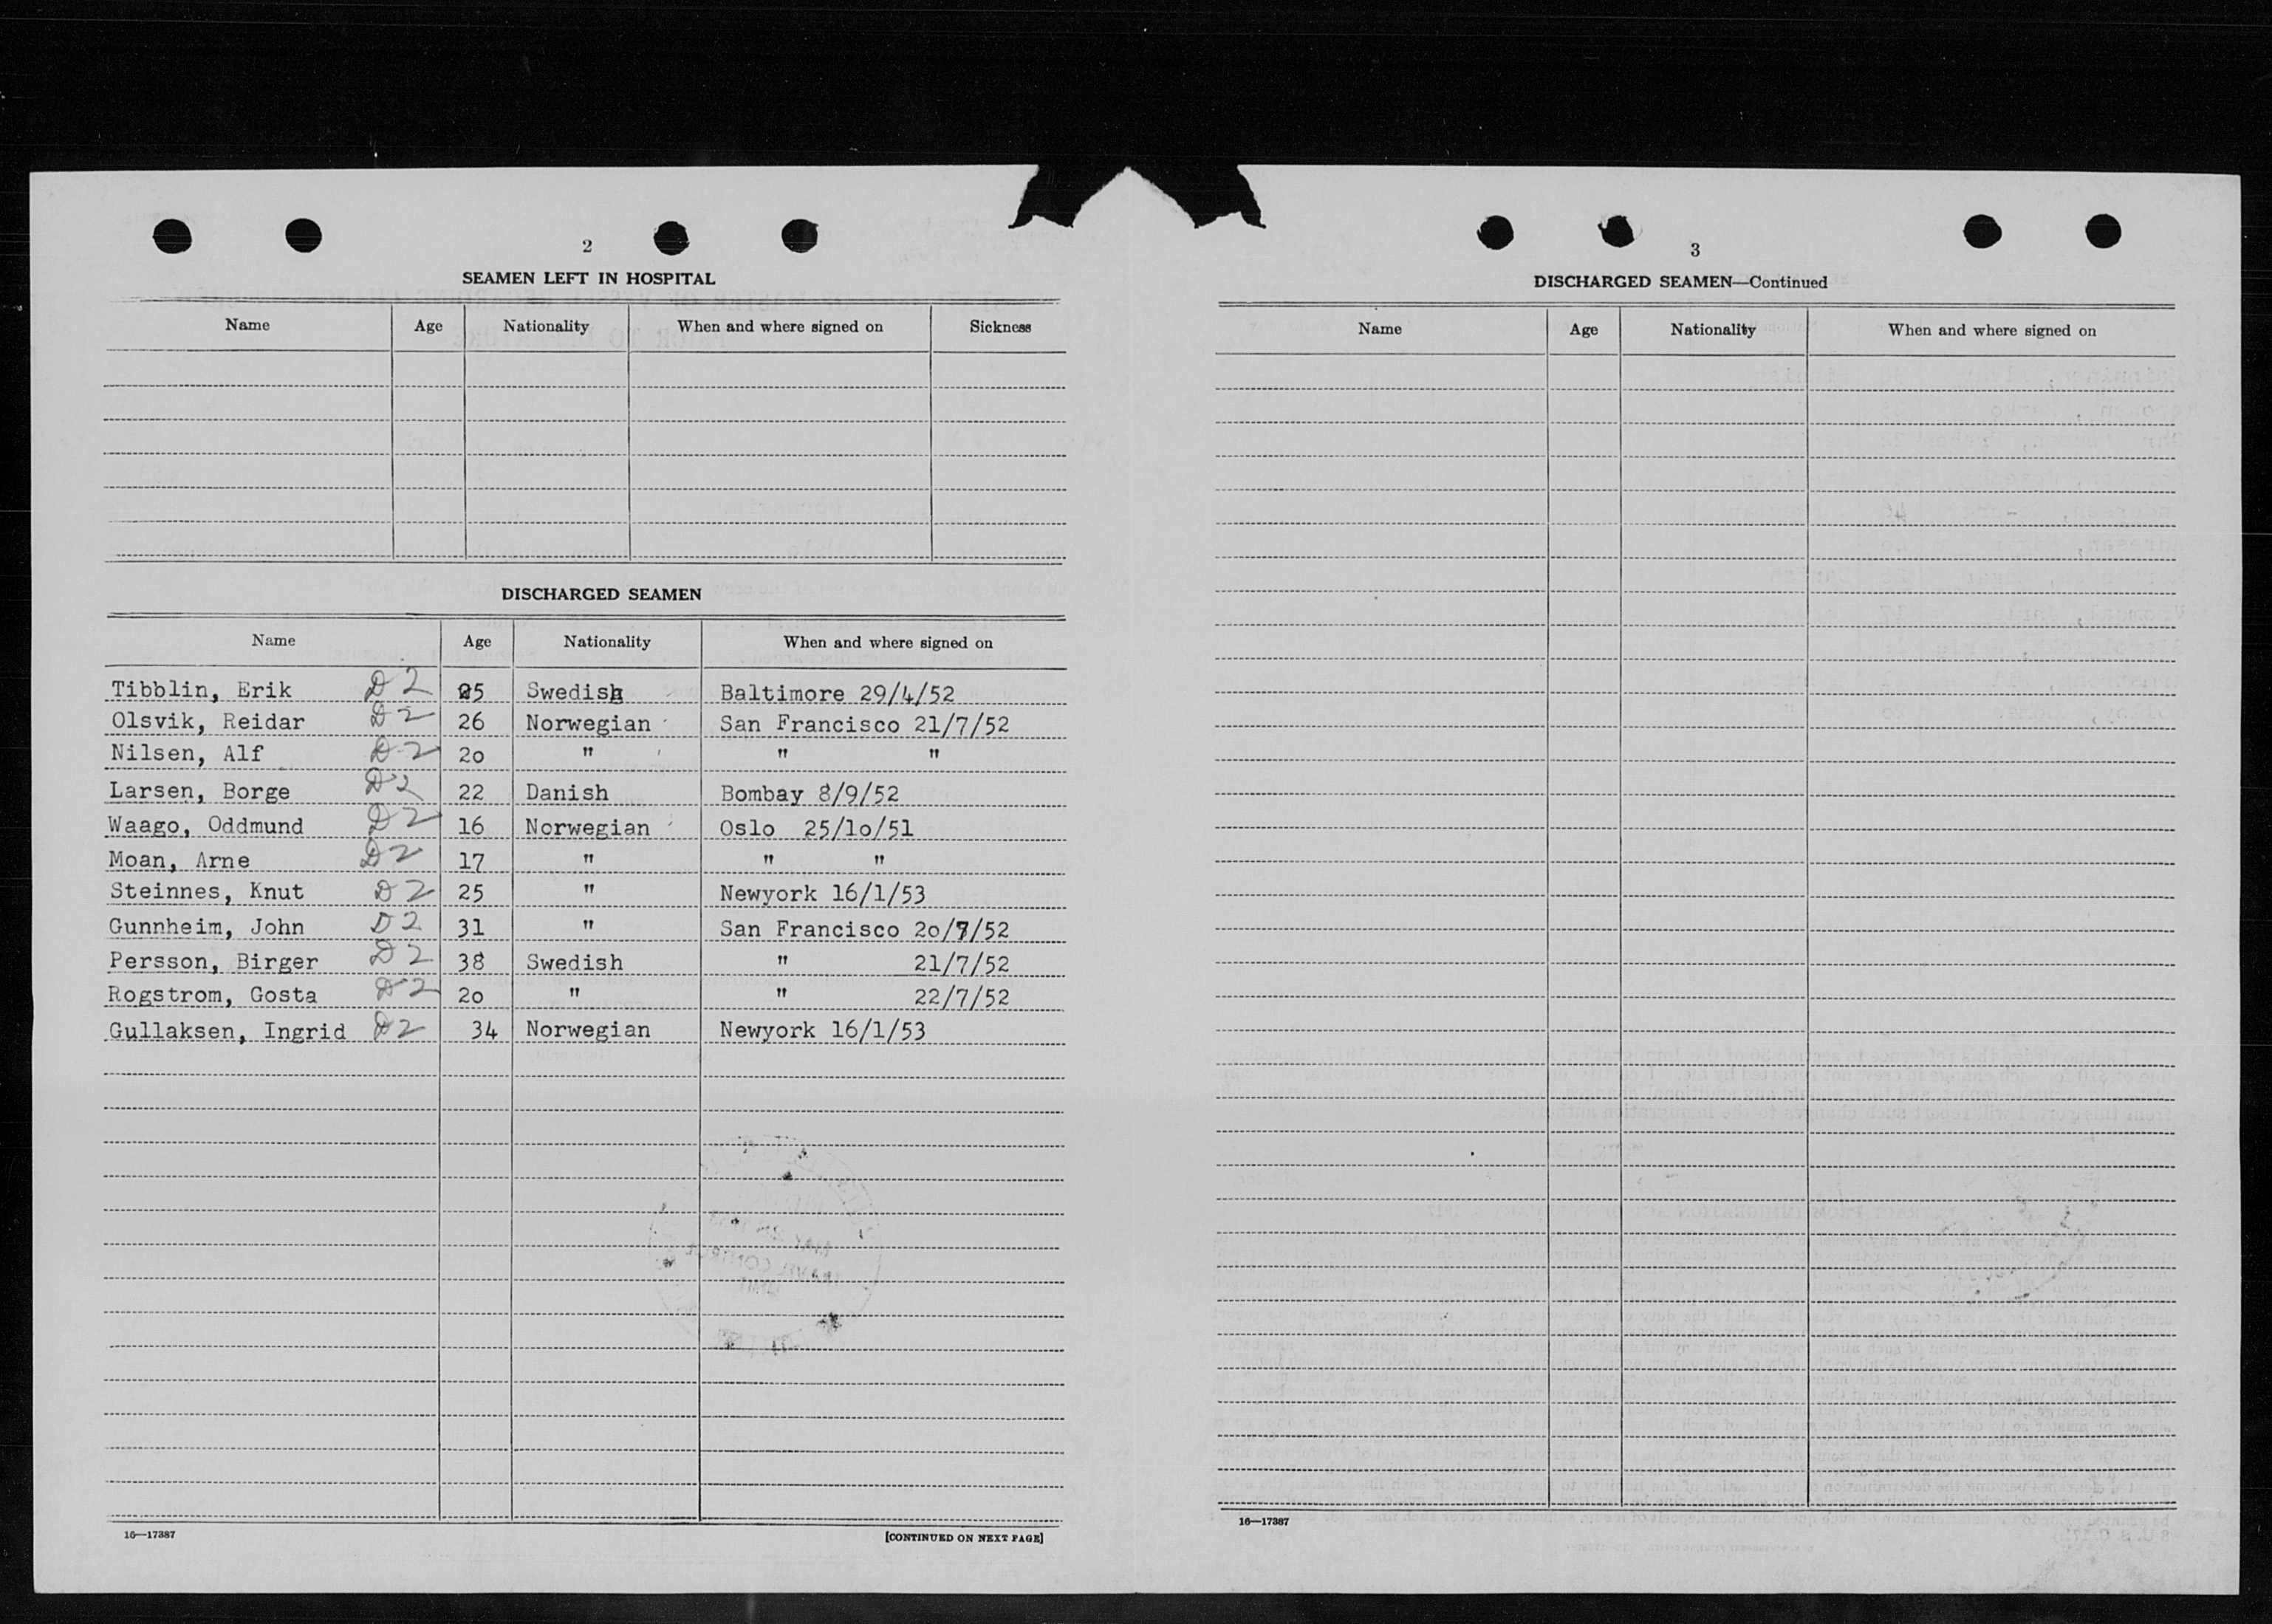 2
SEAMEN LEFT IN HOSPITAL
Name Age Nationality When and where signed on Sickness
DISCHARGED SEAMEN
Name Age Nationality When and where signed on
Tibblin, Erik D2 25 Swedish Baltimore 29/4/52
Olsvik, Reidar D2 26 Norwegian San Francisco 21/7/52
Nilsen, Alf D2 2o " " "
Larsen, Borge D2 22 Danish Bombay 8/9/52
Waago, Oddmund D2 16 Norwegian Oslo 25/1o/51
Moan, Arne D2 17 " " "
Steinnes, Knut D2 25 " Newyork 16/1/53
Gunnheim, John D2 31 " San Francisco 2o/7/52
Persson, Birger D2 38 Swedish " 21/7/52
Rogstrom, Gosta D2 2o " " 22/7/52
Gullaksen, Ingrid D2 34 Norwegian Newyork 16/1/53
16—17387 [CONTINUED ON NEXT PAGE]
3
DISCHARGED SEAMEN—Continued
Name Age Nationality When and where signed on
16—17387